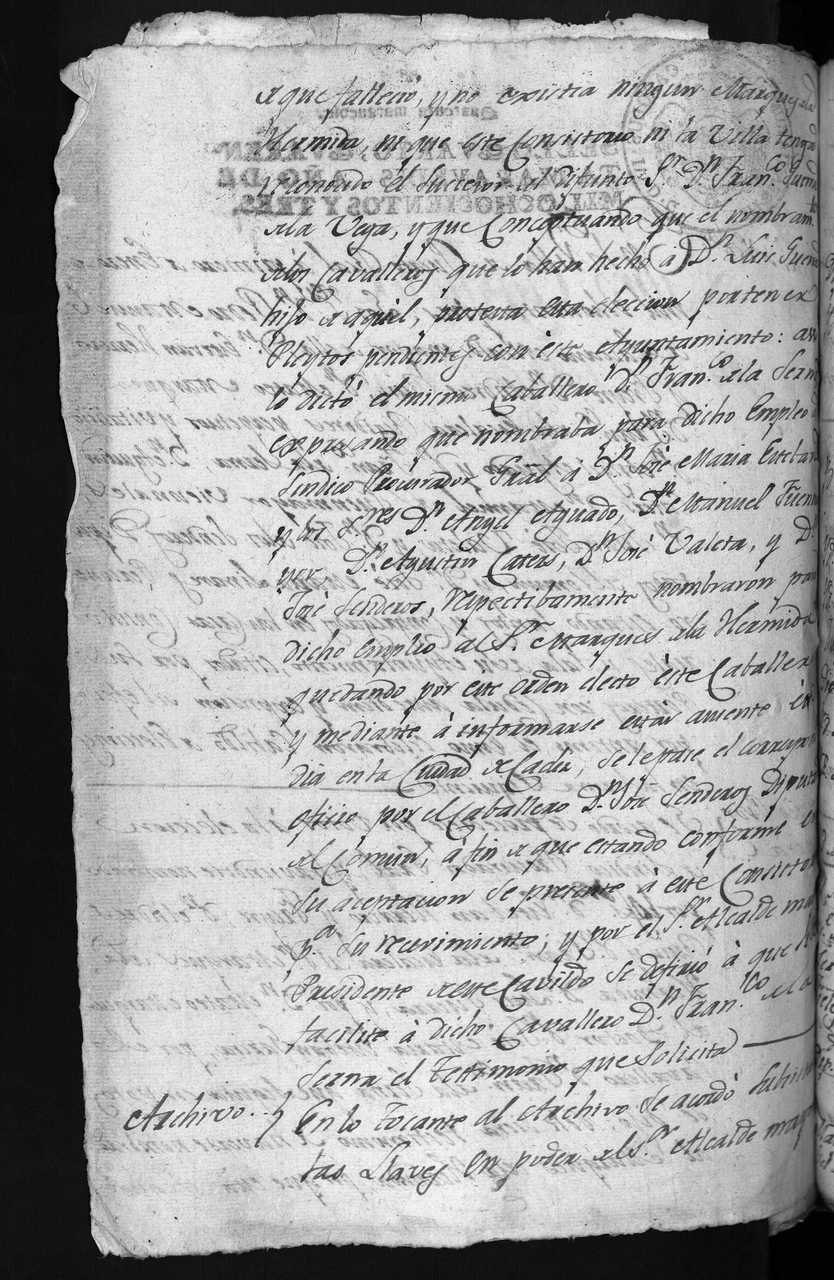 a que fallecio, y no existia ningun Marques de la
Hermida, ni que este Consistorio ni la Villa tenga
el succesor del difunto Sr. Dn. Franco. Fuen
de la Vega, y que conceptuando que el nombramto
de los Cavalleros que lo han hecho à Dn. Luis Fuen
hijo de aquel, protexta esta eleccion por tener
Pleytos pendientes con este Ayuntamiento: asi
lo dictó el mismo Caballero Dn. Franco. de la Serna
expresando que nombraba para dicho Empleo de
Sindico Procurador Gral à Dn. Josè Maria Esteban
y los Sres. Dn. Angel Aguado, Dn. Manuel Fuen
yor Dn. Agustin Cateras, Dn. Josè Valeta, y Dn.
Josè Senderos, respectibamente nombraron para
dicho empleo al Sr. Marques de la Hermida
quedando por este orden electo èste Caballero
y mediante à informarse estàr ausente èn
dia en la Ciudad de Cadiz, se le pase el correspon
oficio por el Caballero Dn. Josè Senderos Diputado
del Comun, à fin de que estando conforme en
su aceptacion se presente à este Consistorio
pa. su recivimiento; y por el Sr. Alcalde mayor
Presidente de este Cavildo se defirió à que se
facilite à dicho Cavallero Dn. Franco. de la
Serna el Testimonio que solicita
Archivo.. En lo tocante al Archivo se acordò
tas Llaves en poder del Sr. Alcalde mayor